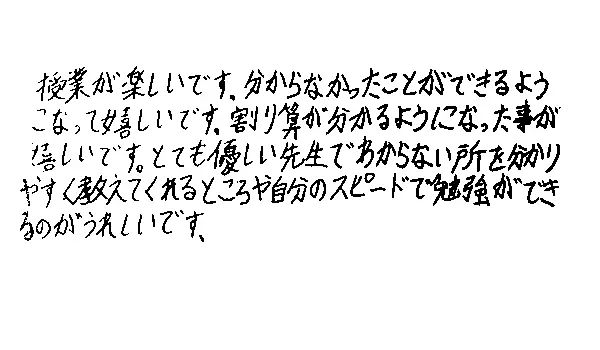 授業が楽しいです。分からなかったことができるよう
になって嬉しいです。割り算が分かるようになった事が
嬉しいです。とても優しい先生でわからない所を分かり
やすく教えてくれるところや自分のスピードで勉強ができ
るのがうれしいです。